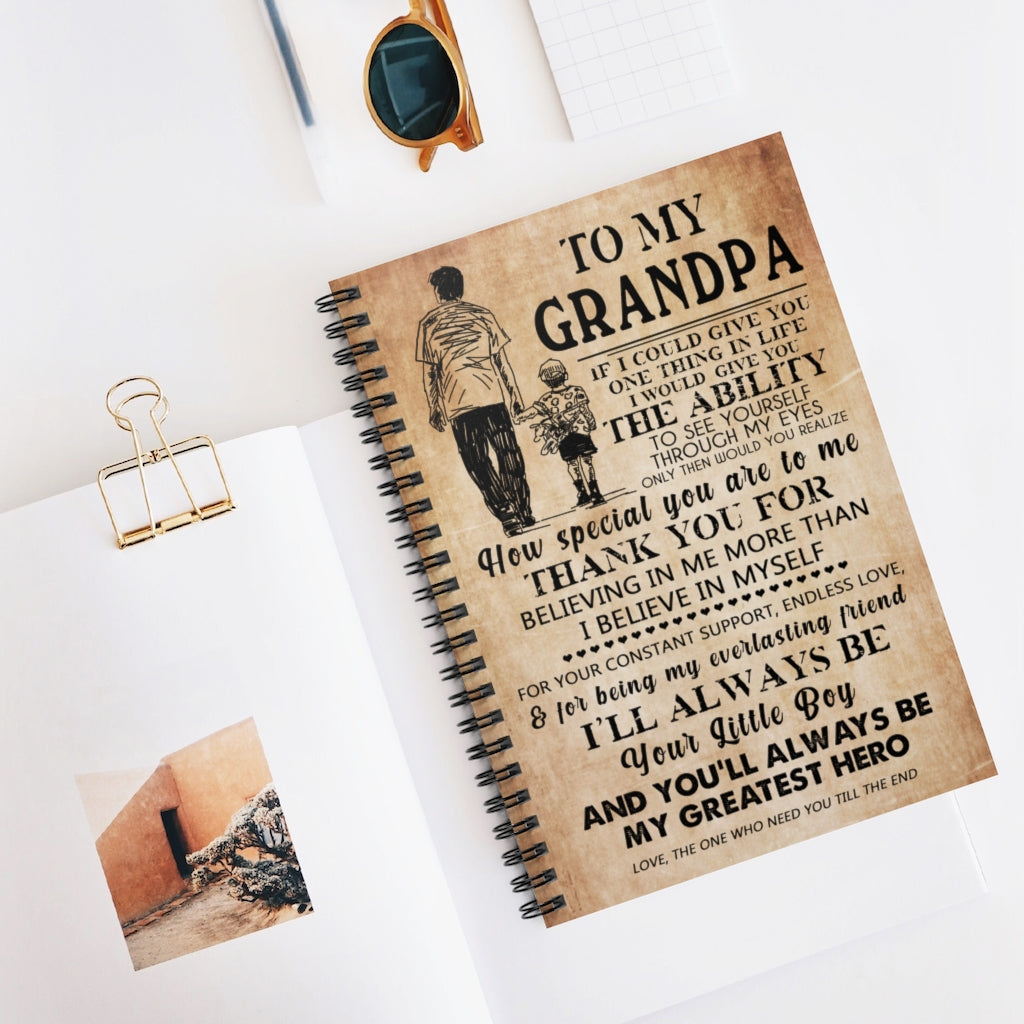 TO MY
GRANDPA
IF I COULD GIVE YOU
ONE THING IN LIFE
I WOULD GIVE YOU
THE ABILITY
TO SEE YOURSELF
THROUGH MY EYES
ONLY THEN WOULD YOU REALIZE
How special you are to me
THANK YOU FOR
BELIEVING IN ME MORE THAN
I BELIEVE IN MYSELF
FOR YOUR CONSTANT SUPPORT, ENDLESS LOVE,
& for being my everlasting friend
I'LL ALWAYS BE
Your Little Boy
AND YOU'LL ALWAYS BE
MY GREATEST HERO
LOVE, THE ONE WHO NEED YOU TILL THE END